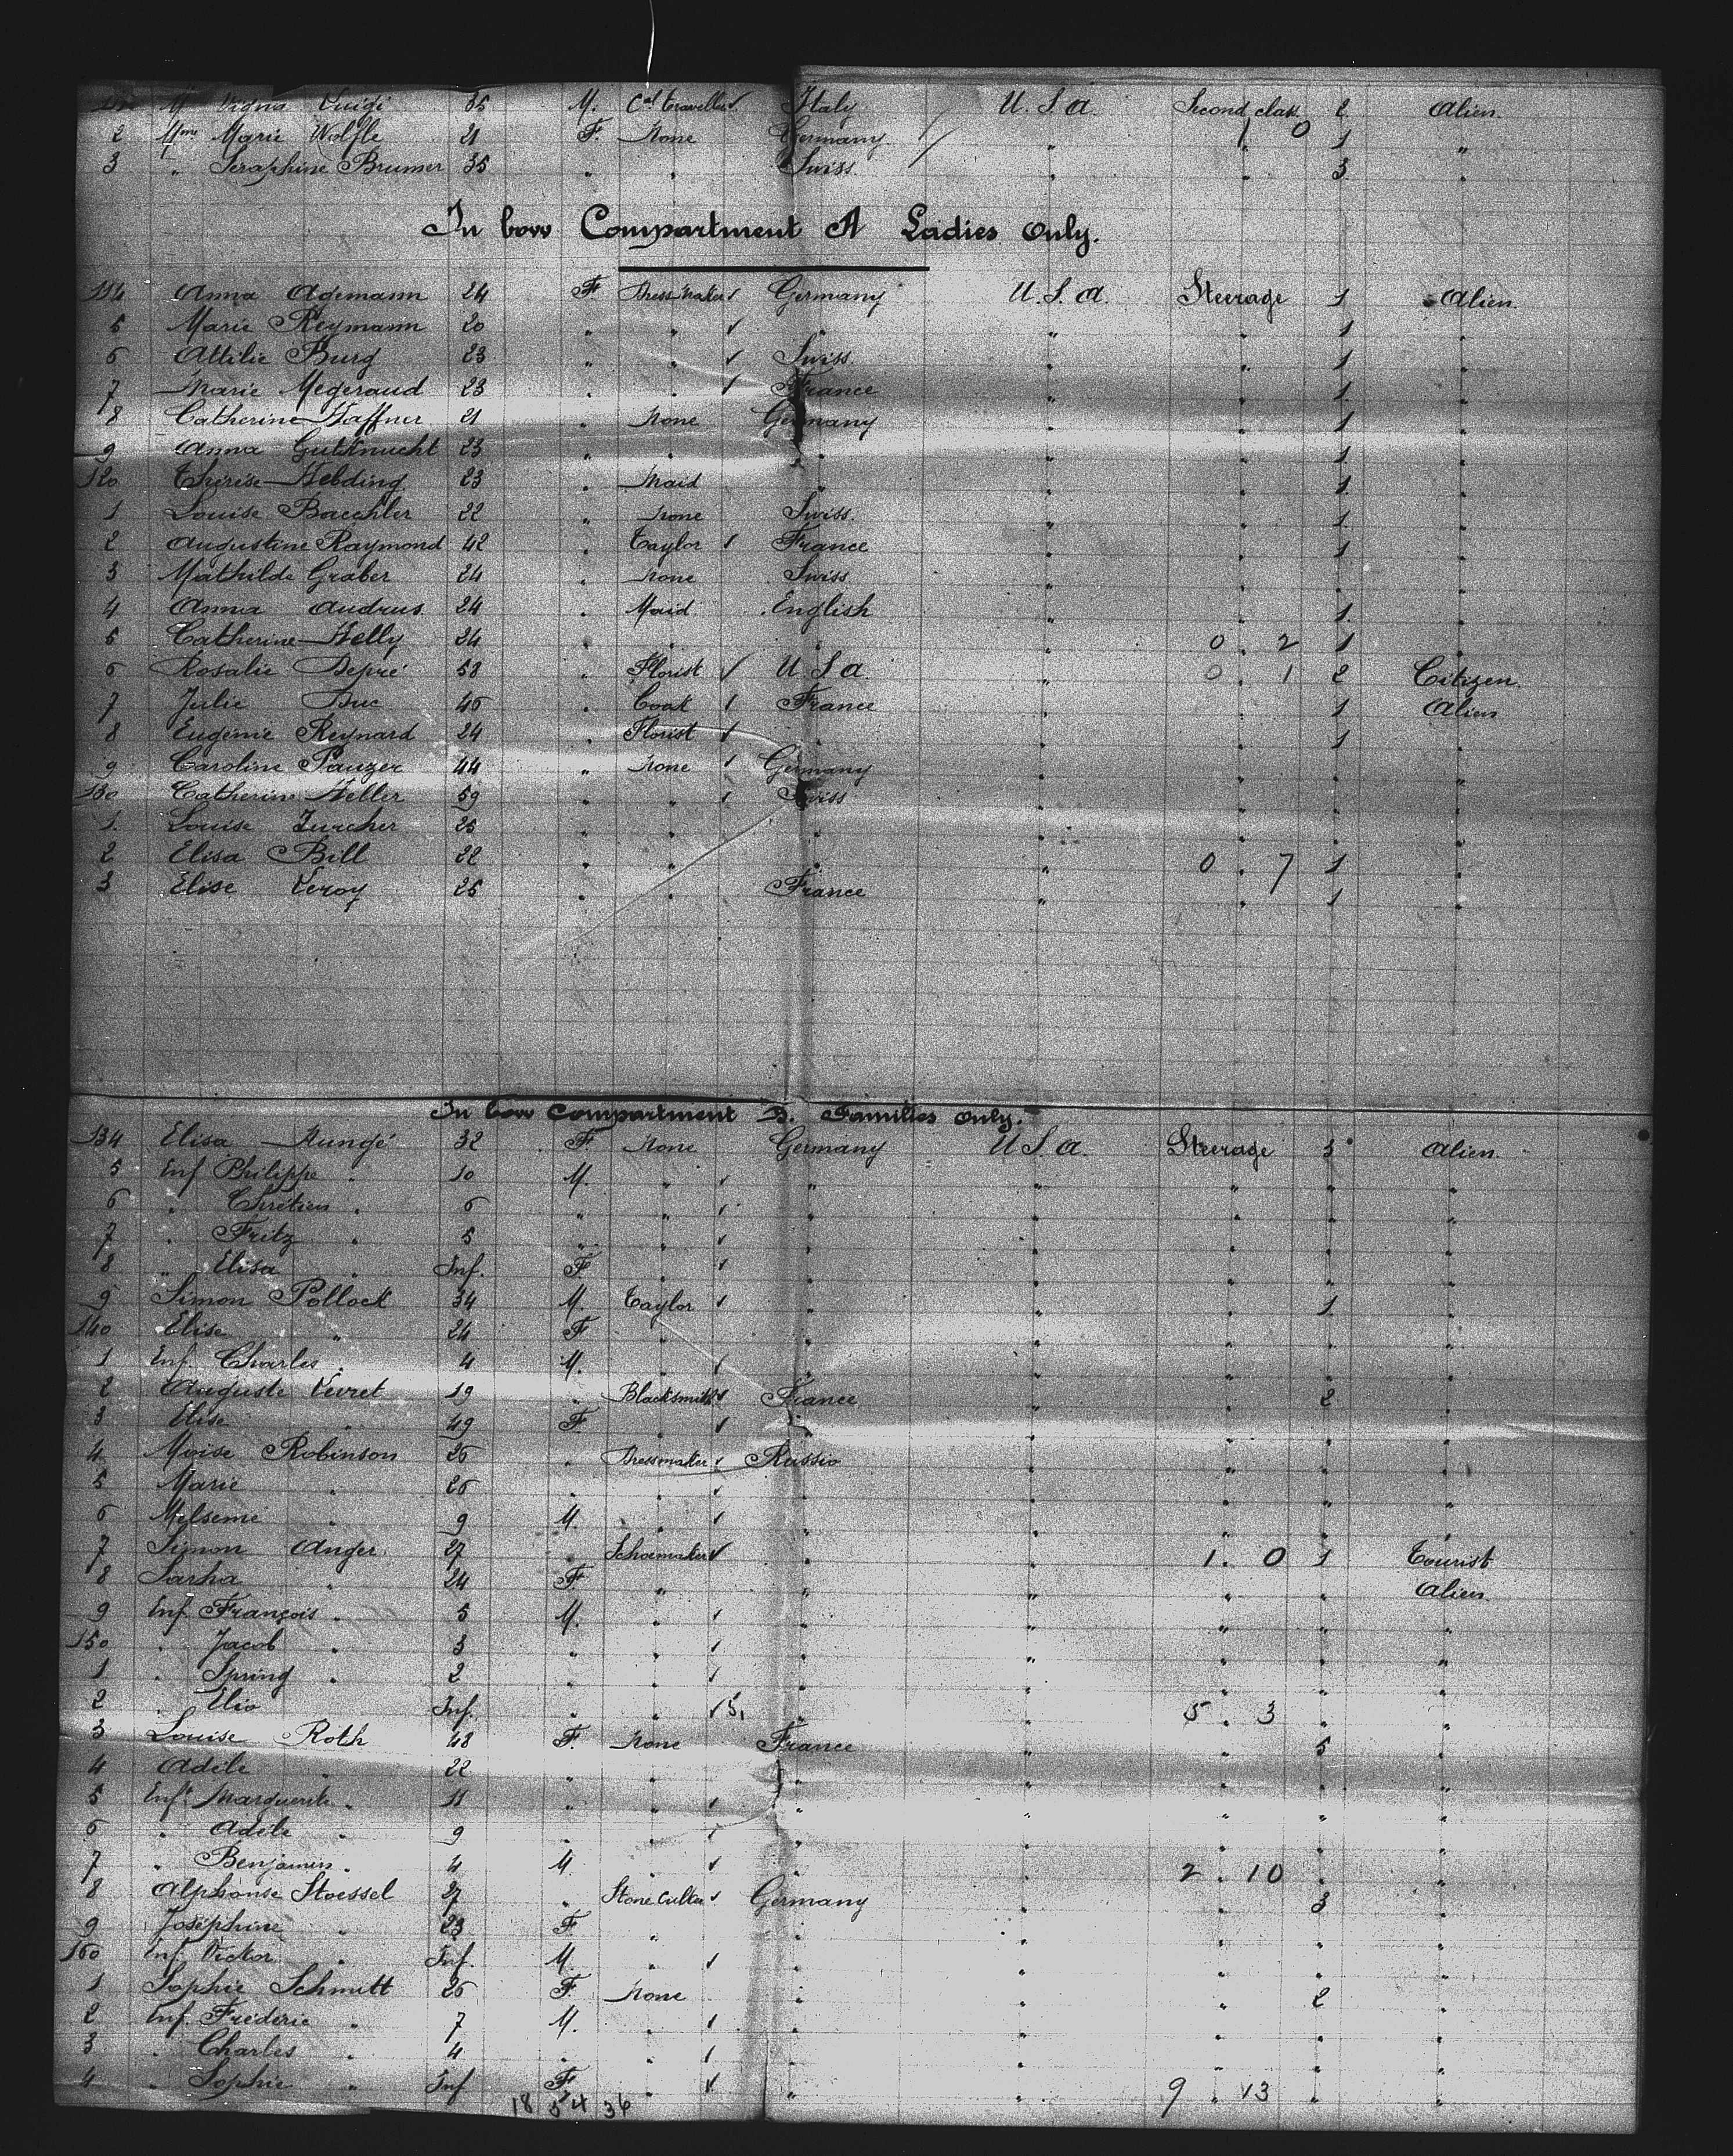 Mr Vigna Luigi 35 M. Cal traveller ✓ Italy U. S. A. Second class 2 Alien.
2 Mme Marie Wolfle 21 F. None Germany " 1 0 1 "
3 " Séraphine Brunner 35 " " Swiss. " " 3 "
In bow Compartment A Ladies Only.
114 Anna Agemann 24 F Dress Maker ✓ Germany U. S. A. Steerage 1 Alien.
5 Marie Reymann 20 " " ✓ " " " 1 "
6 Attilie Burg 23 " " ✓ Swiss. " " 1 "
7 Marie Megeraud 23 " " ✓ France " " 1 "
8 Catherine Haffner 21 " None Germany " " 1 "
9 Anna Gutknucht 23 " " " " " 1 "
120 Thérèse Hebding 23 " Maid " " " 1 "
1 Louise Baechler 22 " None Swiss. " " 1 "
2 Augustine Raymond 42 " Taylor ✓ France " " 1 "
3 Mathilde Graber 24 " None Swiss " " "
4 Anna Audrus 24 " Maid English " " 1 "
5 Catherine Kelly 24 " " " " 0 . 2 1 "
6 Rosalie Depré 58 " Florist ✓ U S A. " 0 . 1 2 Citizen.
7 Julie Duc 46 " Cook ✓ France " " 1 Alien
8 Eugénie Reynard 24 " Florist ✓ " " " 1 "
9 Caroline Panzer 44 " None ✓ Germany " " " "
130 Catherine Keller 59 " " ✓ Swiss " " " "
1. Louise Zurcher 25 " " " " " " "
2 Elisa Bill 22 " " " " 0 . 7 1 "
3 Elise Leroy 25 " " France " " 1 "
In bow Compartment B. Families Only.
134 Elisa Rungé 32 F. None Germany U S. A. Steerage 3 Alien.
5 Enf Philippe " 10 M. " ✓ " " " " "
6 " Chrétien " 6 " " ✓ " " " " "
7 " Fritz " 5 " " ✓ " " " " "
8 " Elisa " Inf. F " ✓ " " " " "
9 Simon Pollock 34 M. Taylor ✓ " " " 1 "
140 Elise " 24 F " " " " " "
1 Enf. Charles " 4 M. " ✓ " " " " "
2 Auguste Veiret 19 " Blacksmith ✓ France " " 2 "
3 Elise " 49 F " ✓ " " " " "
4 Moise Robinson 26 " Dressmaker ✓ Russia " " " "
5 Marie " 26 " " ✓ " " " " "
6 " 9 M. " ✓ " " " " "
7 Simon Anger. 27 " Schoemaker ✓ " " 1 . 0 1 Tourist
8 Sarha " 24 F " " " " " Alien.
9 Enf. François " 5 M. " ✓ " " " " "
150 " Jacob " 3 " " ✓ " " " " "
1 " Spring " 2 " " ✓ " " " " "
2 " Elio " Inf. " " ✓ 5, " " 5 . 3 " "
3 Louise Roth 48 F. None France " " 5 "
4 Adèle " 22 " " " " " " "
5 Enf. Marguerite " 11 " " ✓ " " " " "
6 " Adèle " 9 " " ✓ " " " " "
7 " Benjamin " 4 M " ✓ " " 2 . 10 " "
8 Alphonse Stoessel 27 " Stone Cutter ✓ Germany " " 3 "
9 Joséphine " 23 F " " " " " "
160 Enf. Victor " Inf. M. " ✓ " " " " "
1 Sophie Schmitt 26 F. None " " " 2 "
2 Enf. Fréderic " 7 M. " ✓ " " " " "
3 " Charles " 4 " " ✓ " " " " "
4 " Sophie " Inf F " ✓ " " 9 . 13 " "
18 54 36